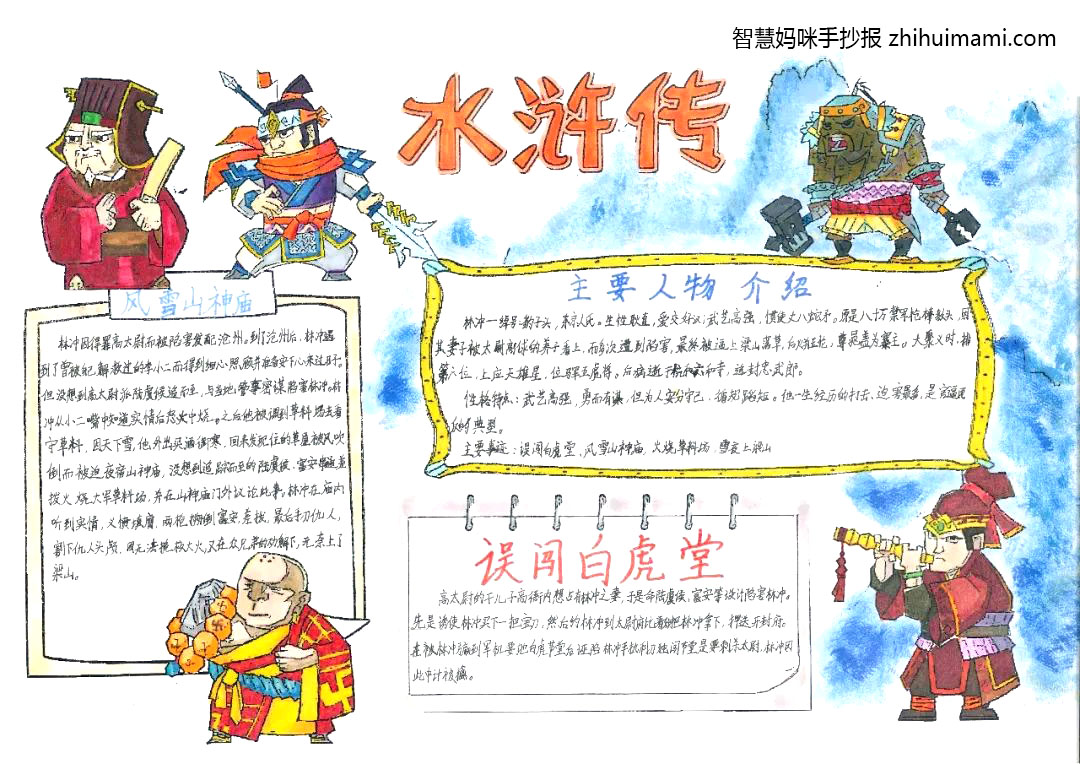 智慧妈咪手抄报 zhihuimami.com
水浒传
风雪山神庙
林冲因得罪高太尉而被陷害发配沧州。到了沧州后，林冲遇
到了曾被他解救过的李小二而得到细心照顾并准备安下心来过日子。
但没想到高太尉派陆虞候追而至，与当地管事密谋陷害林冲。林
冲从小二嘴中知道实情后怒火中烧。之后他被调到草料场去看
守草料，因天下雪，他外出买酒御寒，回来发现住的草屋被风吹
倒而被迫夜宿山神庙，没想到追踪而至的陆虞候、富安
拨火烧大军草料场，并在山神庙门外议论此事，林冲在庙内
听到实情，义愤填膺，而枪搠倒富安、差拨，最后手刃仇人，
割下仇人头颅，因无法扑救大火，又在众兄弟的劝解下，无奈上了
梁山。
主要人物 介绍
林冲一绰号豹子头，东京人氏。生性耿直，爱交好汉；武艺高强，惯使丈八蛇矛。原是八十万禁军枪棒教头，因
其妻子被太尉高俅的养子看上，而多次遭到陷害，最终被逼上梁山落草，尊晁盖为寨主。大聚义时，排
第六位，上应天雄星，位列马军五虎将。后病逝于杭州六和寺，追封忠武郎。
性格特点：武艺高强，勇而有谋，但为人安分守己、循规蹈矩。他一生经历的打击、迫害最多，是官逼民
反的典型。
主要事迹：误闯白虎堂、风雪山神庙、火烧草料场、雪夜上梁山
误闯白虎堂
高太尉的干儿子高衙内想占有林冲之妻，于是命陆虞候、富安等设计陷害林冲。
先是诱使林冲买下一把宝刀，然后约林冲到太尉府比看把林冲拿下，押送开封府。
在被林冲骗到军机要地白虎节堂后证陷林冲手执利刃独闯节堂是要刺杀太尉，林冲因
此中计被擒。